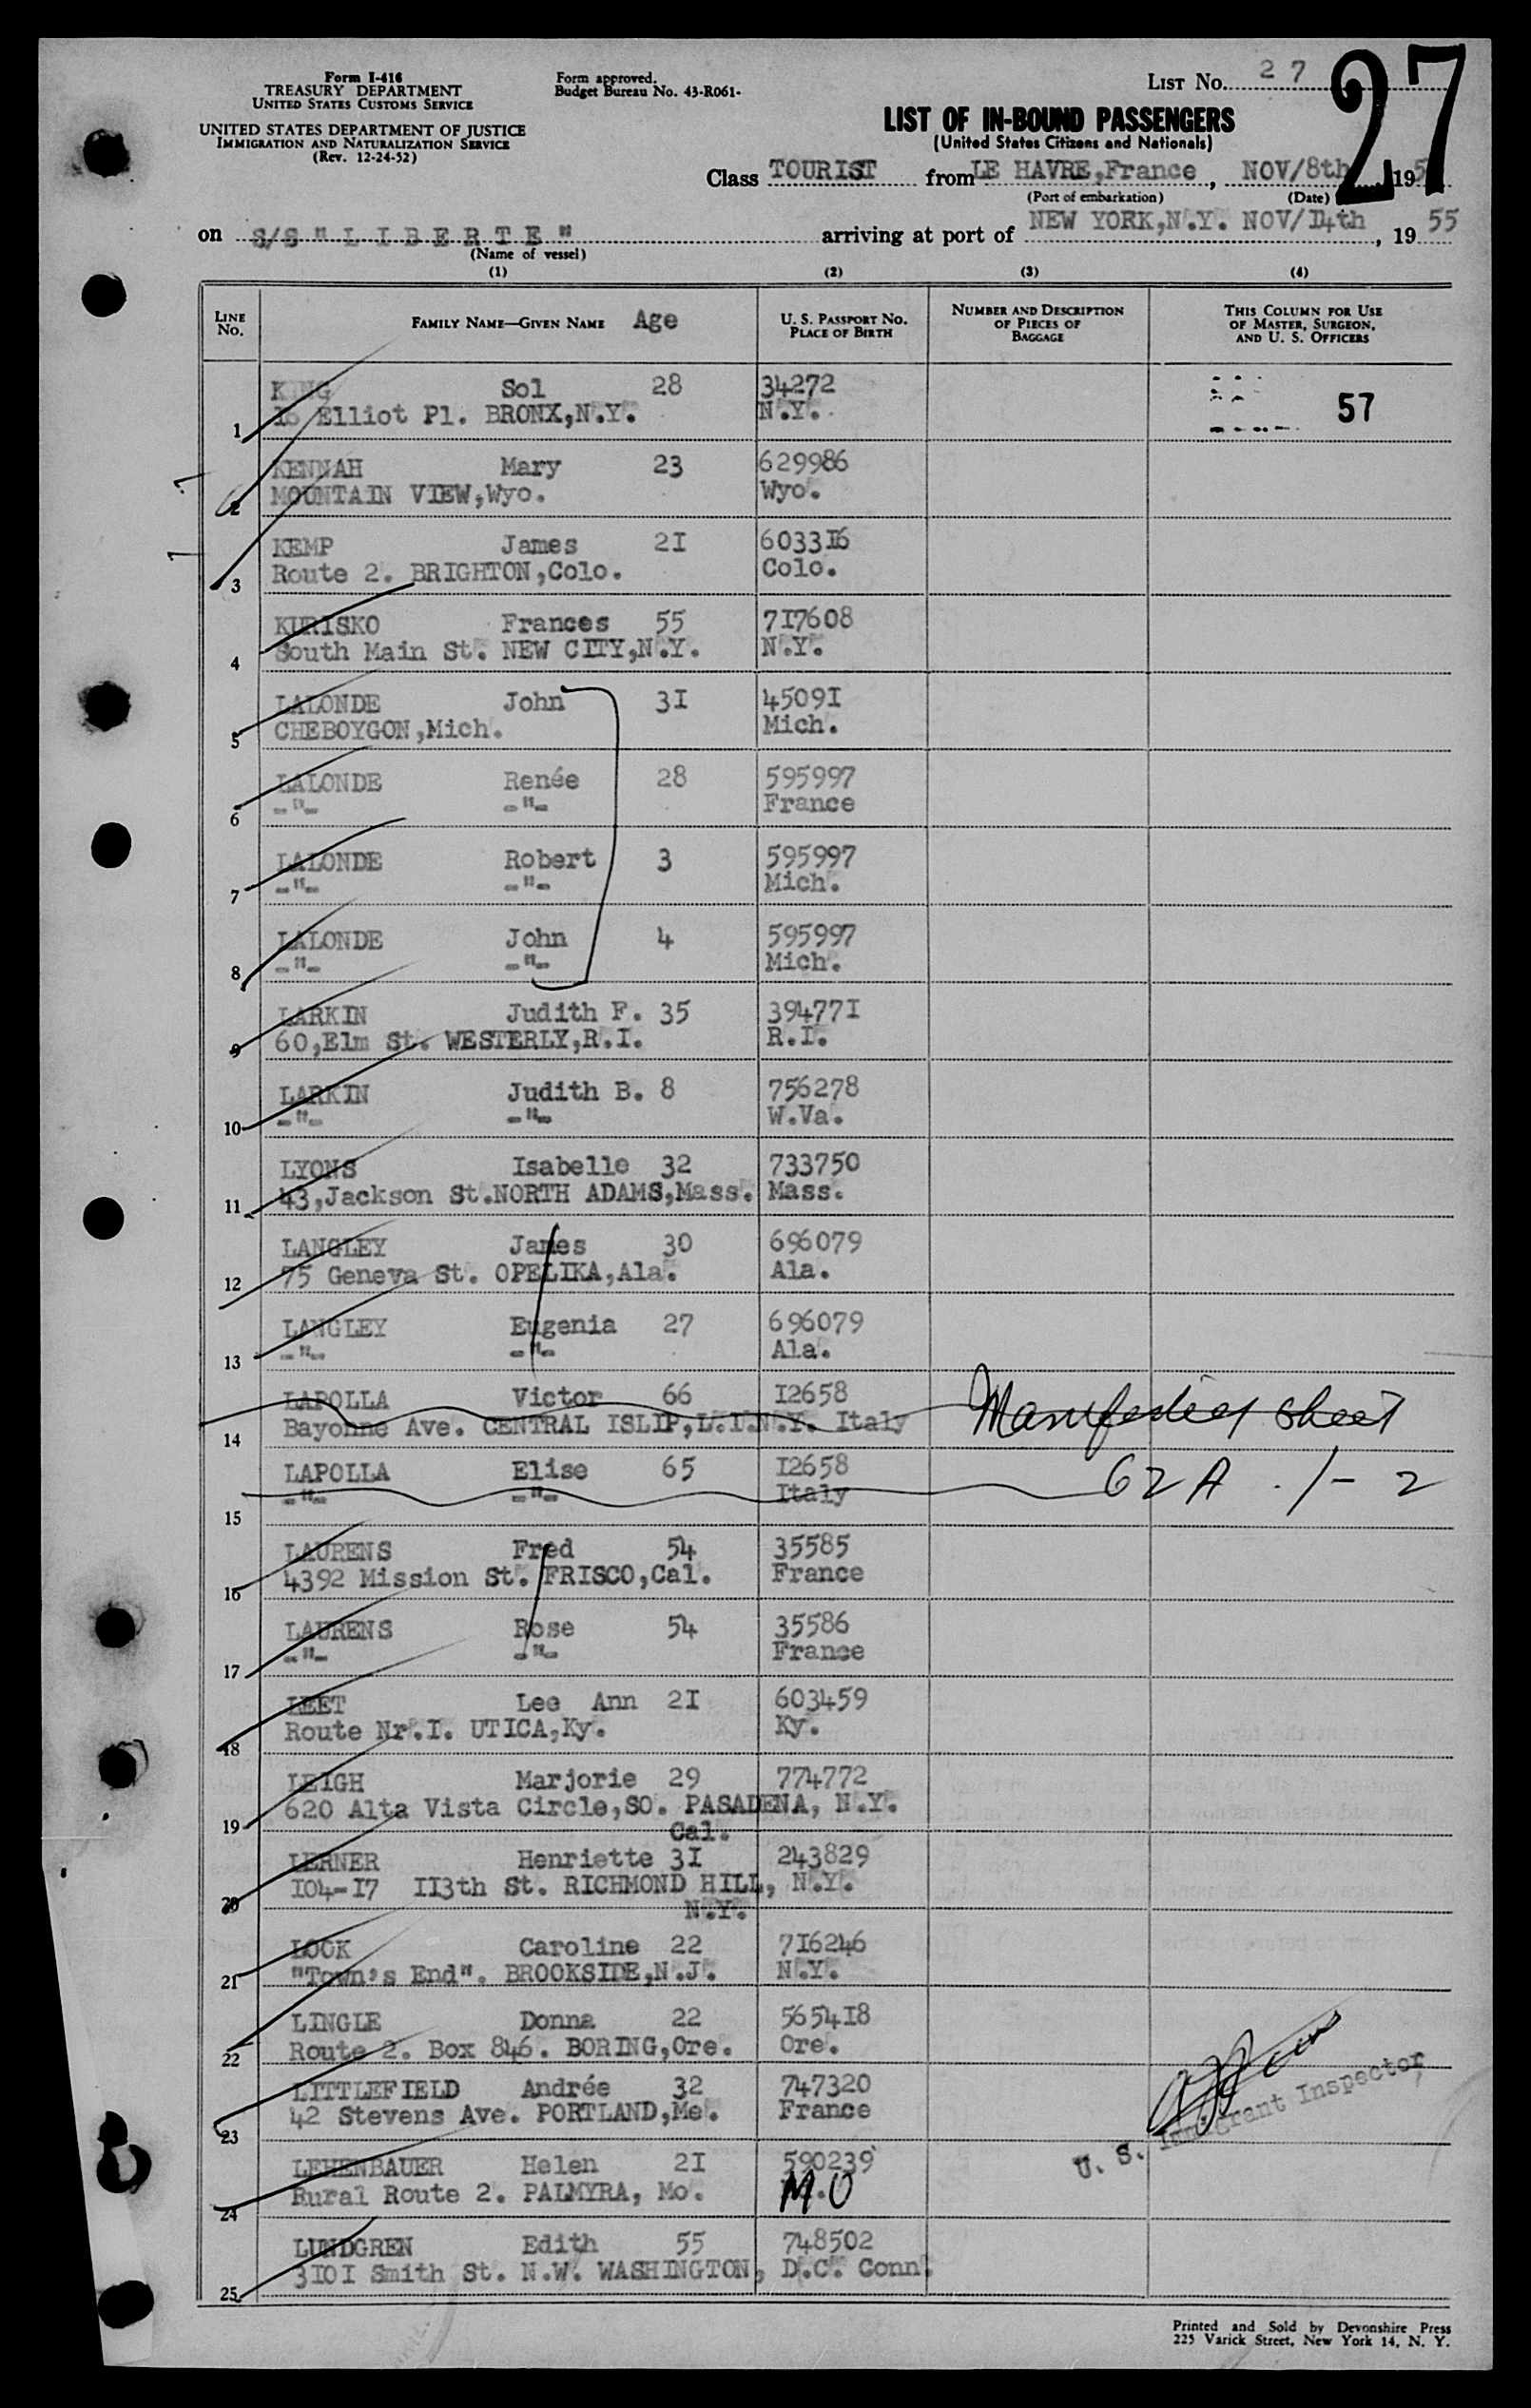 Form I-416
TREASURY DEPARTMENT
UNITED STATES CUSTOMS SERVICE
UNITED STATES DEPARTMENT OF JUSTICE
IMMIGRATION AND NATURALIZATION SERVICE
(Rev. 12-24-52)
Form approved.
Budget Bureau No. 43-R061-
LIST No. 27
27
LIST OF IN-BOUND PASSENGERS
(United States Citizens and Nationals)
Class TOURIST from LE HAVRE,France, NOV/8th, 195
(Port of embarkation) (Date)
on S/S "LIBERTE" arriving at port of NEW YORK,N.Y. NOV/14th, 19 55
(Name of vessel)
(1) (2) (3) (4)
LINE No. FAMILY NAME—GIVEN NAME Age U. S. PASSPORT No. PLACE OF BIRTH NUMBER AND DESCRIPTION OF PIECES OF BAGGAGE THIS COLUMN FOR USE OF MASTER, SURGEON, AND U. S. OFFICERS
KING Sol 28 34272
1 16 Elliot Pl. BRONX,N.Y. N.Y. 57
KENNAH Mary 23 629986
2 MOUNTAIN VIEW,Wyo. Wyo.
KEMP James 2I 6033I6
3 Route 2. BRIGHTON,Colo. Colo.
KURISKO Frances 55 7I7608
4 South Main St. NEW CITY,N.Y. N.Y.
LALONDE John 3I 4509I
5 CHEBOYGON,Mich. Mich.
LALONDE Renée 28 595997
6 -"- -"- France
LALONDE Robert 3 595997
7 -"- -"- Mich.
LALONDE John 4 595997
8 -"- -"- Mich.
LARKIN Judith F. 35 39477I
9 60,Elm St. WESTERLY,R.I. R.I.
LARKIN Judith B. 8 756278
10 -"- -"- W.Va.
LYONS Isabelle 32 733750
11 43,Jackson St.NORTH ADAMS,Mass. Mass.
LANGLEY James 30 696079
12 75 Geneva St. OPELIKA,Ala. Ala.
LANGLEY Eugenia 27 696079
13 -"- -"- Ala.
LAPOLLA Victor 66 I2658
14 Bayonne Ave. CENTRAL ISLIP,L.I.N.Y. Italy Manifested sheet
LAPOLLA Elise 65 I2658 62 A . 1 - 2
15 -"- -"- Italy
LAURENS Fred 54 35585
16 4392 Mission St. FRISCO,Cal. France
LAURENS Rose 54 35586
17 -"- -"- France
LEET Lee Ann 2I 603459
18 Route Nr.I. UTICA,Ky. Ky.
LEIGH Marjorie 29 774772
19 620 Alta Vista Circle,SO. PASADENA, N.Y.
Cal.
LERNER Henriette 3I 243829
20 I04-I7 II3th St. RICHMOND HILL, N.Y.
N.Y.
LOOK Caroline 22 7I6246
21 "Town's End". BROOKSIDE,N.J. N.Y.
LINGLE Donna 22 5654I8
22 Route 2. Box 846. BORING,Ore. Ore.
LITTLEFIELD Andrée 32 747320
23 42 Stevens Ave. PORTLAND,Me. France
U. S. Immigrant Inspector
LEHENBAUER Helen 2I 590239
24 Rural Route 2. PALMYRA, Mo. M.O
LUNDGREN Edith 55 748502
25 3I0I Smith St. N.W. WASHINGTON, D.C. Conn.
Printed and Sold by Devonshire Press
225 Varick Street, New York 14, N. Y.